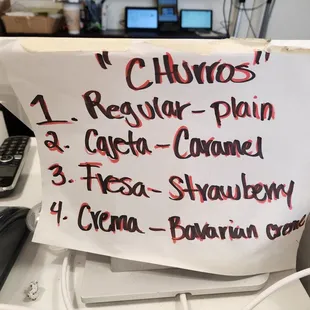 "CHurros"
1. Regular - plain
2. Cajeta - Caramel
3. Fresa - Strawberry
4. Crema - Bavarian creme